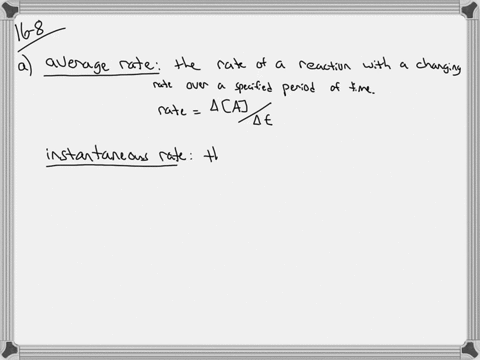 16-8
a) average rate: the rate of a reaction with a changing
rate over a specified period of time.
rate = Δ[A]/Δt
instantaneous rate: th